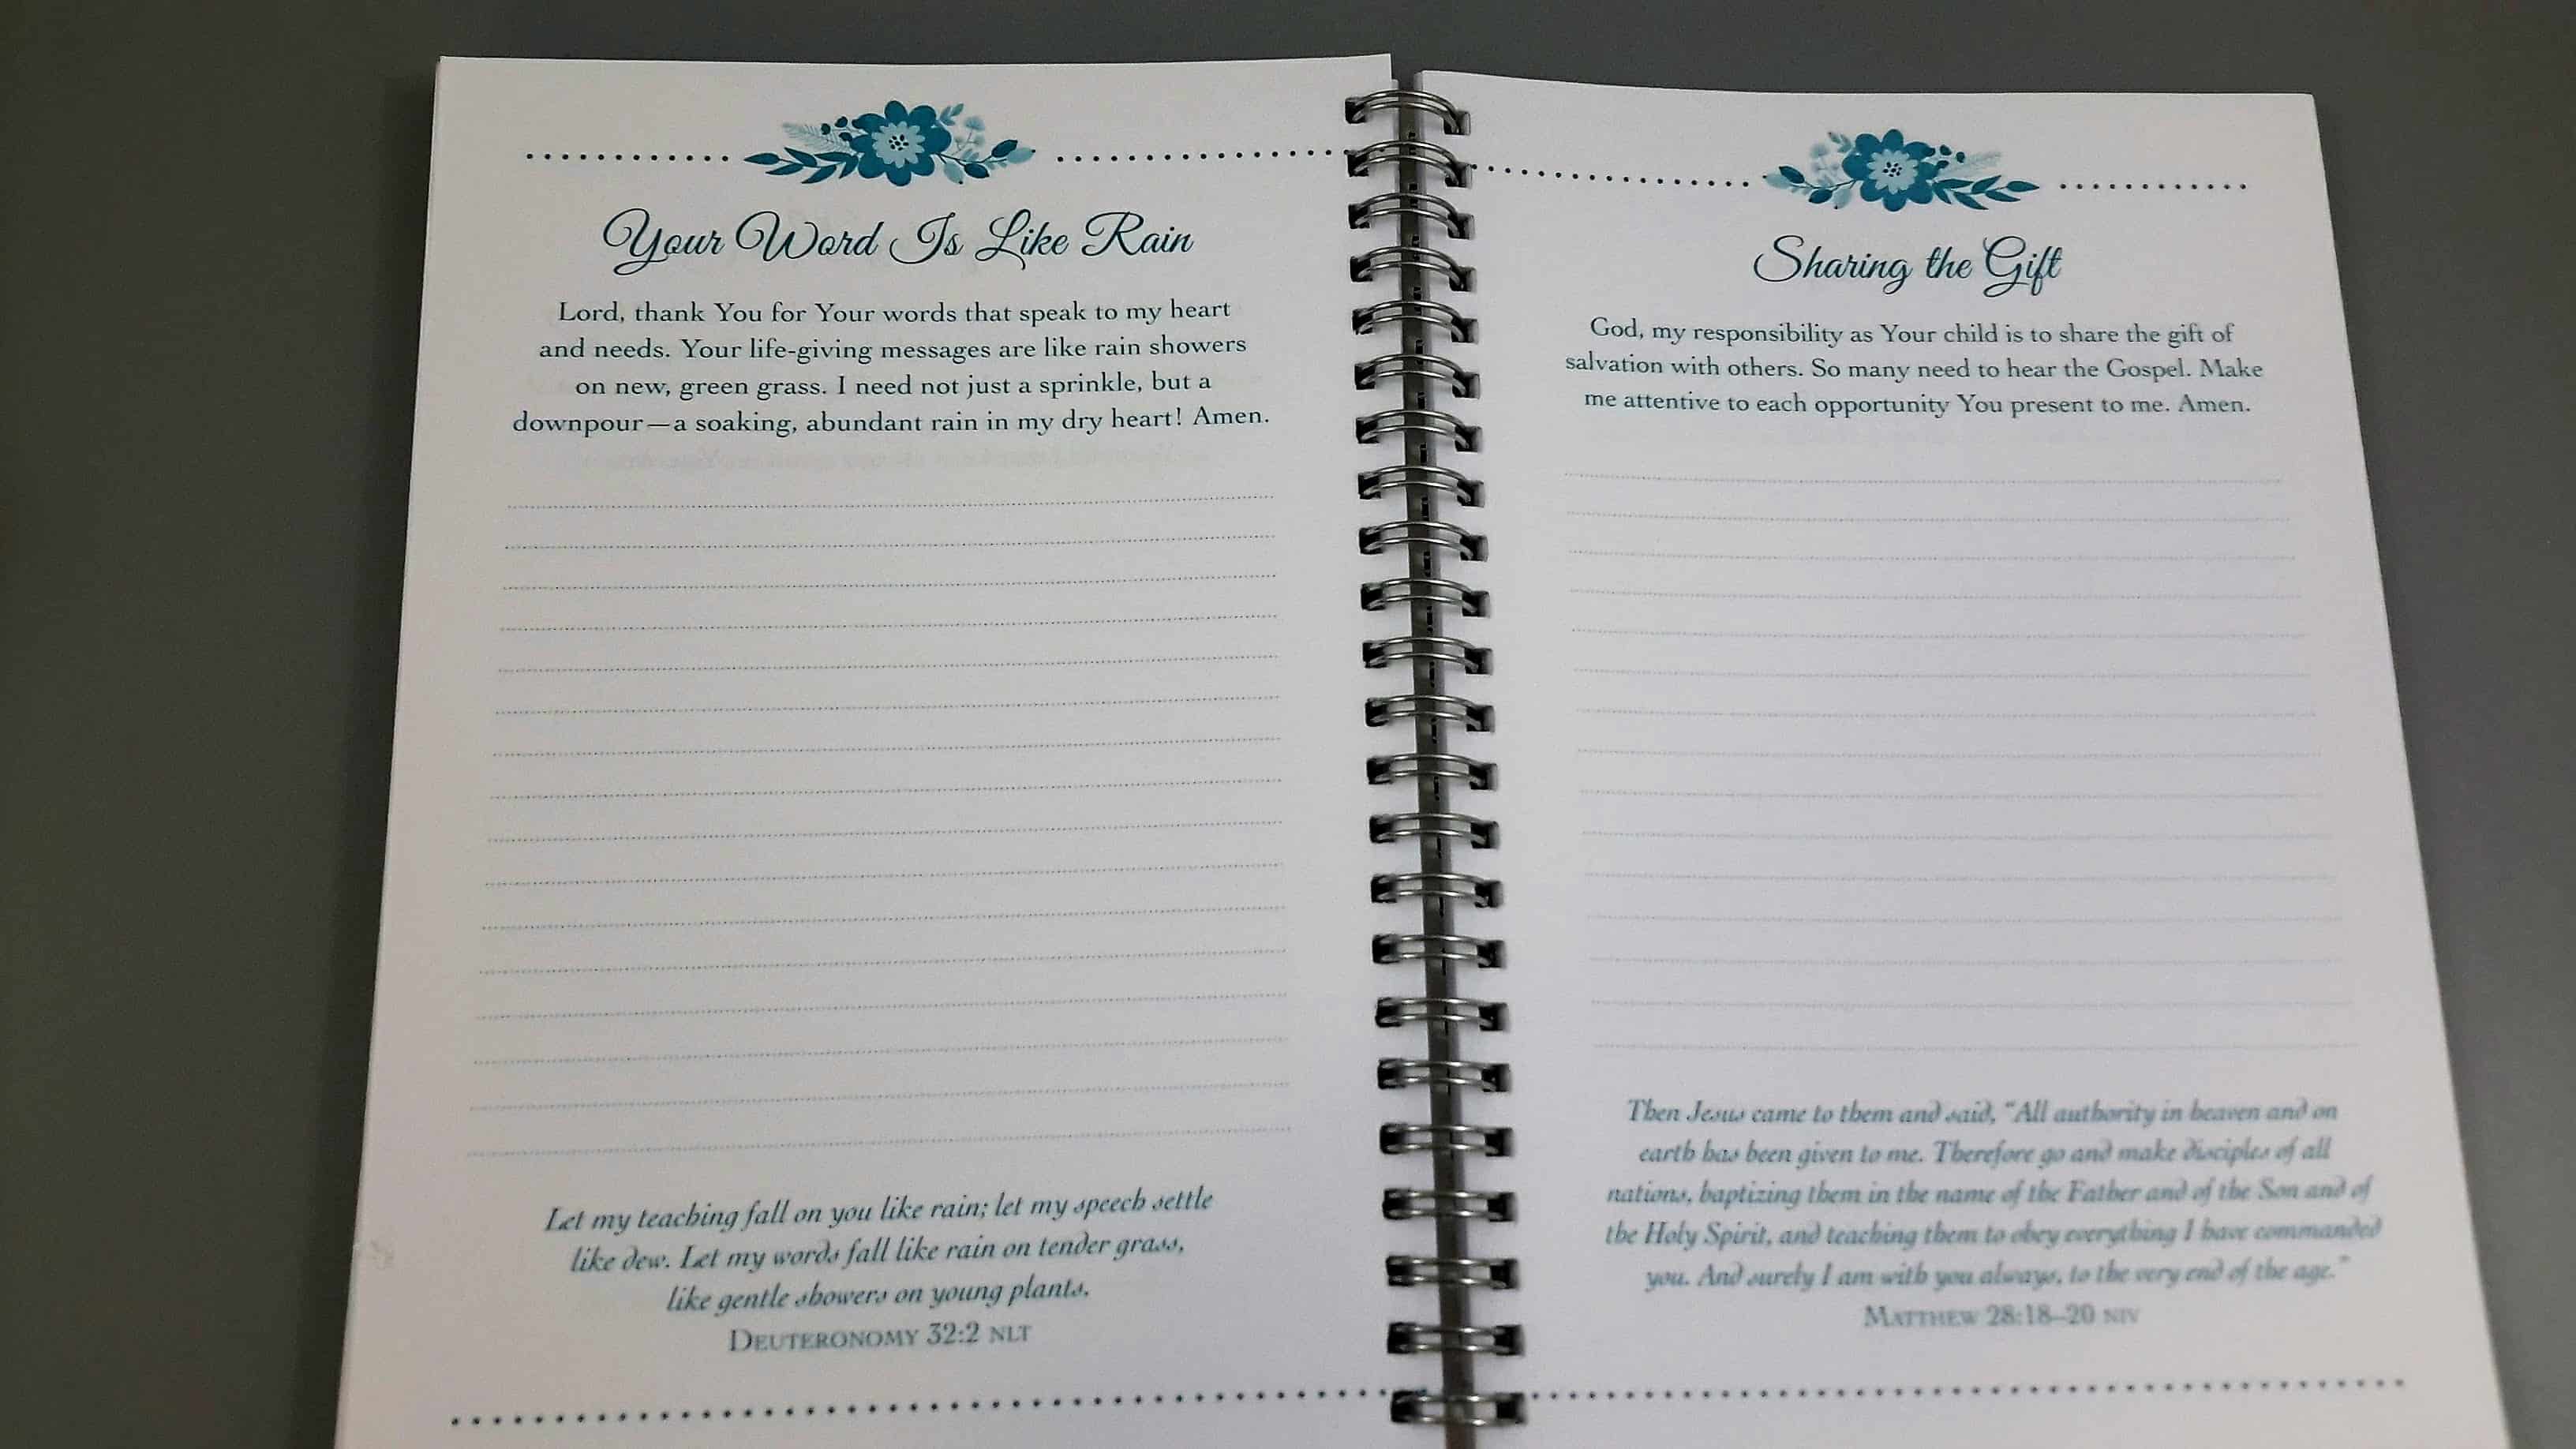 Your Word Is Like Rain
Lord, thank You for Your words that speak to my heart
and needs. Your life-giving messages are like rain showers
on new, green grass. I need not just a sprinkle, but a
downpour—a soaking, abundant rain in my dry heart! Amen.
Let my teaching fall on you like rain; let my speech settle
like dew. Let my words fall like rain on tender grass,
like gentle showers on young plants.
DEUTERONOMY 32:2 NLT
Sharing the Gift
God, my responsibility as Your child is to share the gift of
salvation with others. So many need to hear the Gospel. Make
me attentive to each opportunity You present to me. Amen.
Then Jesus came to them and said, “All authority in heaven and on
earth has been given to me. Therefore go and make disciples of all
nations, baptizing them in the name of the Father and of the Son and of
the Holy Spirit, and teaching them to obey everything I have commanded
you. And surely I am with you always, to the very end of the age.”
MATTHEW 28:18–20 NIV